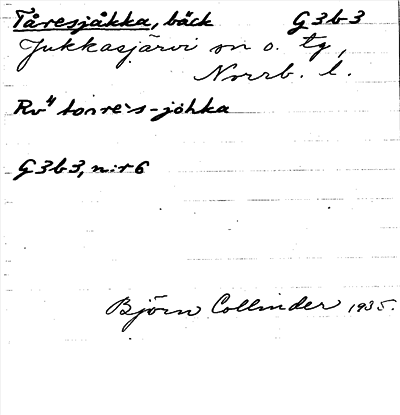 Tåresjåkka, bäck G3b3
Jukkasjärvi sn o. tg,
Norrb. l.
G3b3, n:r 6
Björn Collinder 1935.